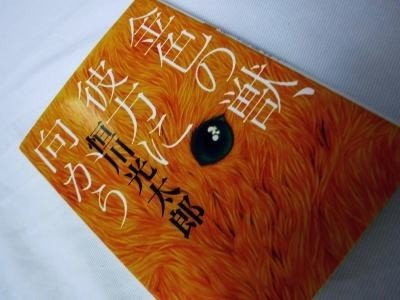 金色の獣、
彼方に
向かう
恒川光太郎